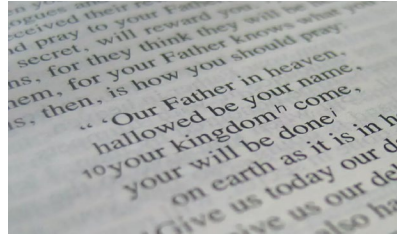 ogues and
ceived their re
nd pray to your Fathe
secret, will reward you
ns, for they think they will be h
hem, for your Father knows what you
is, then, is how you should pray:
“ ‘Our Father in heaven,
hallowed be your name,
10 your kingdom h come,
your will be done i
on earth as it is in h
Give us today our d
ive us our deb
also ha